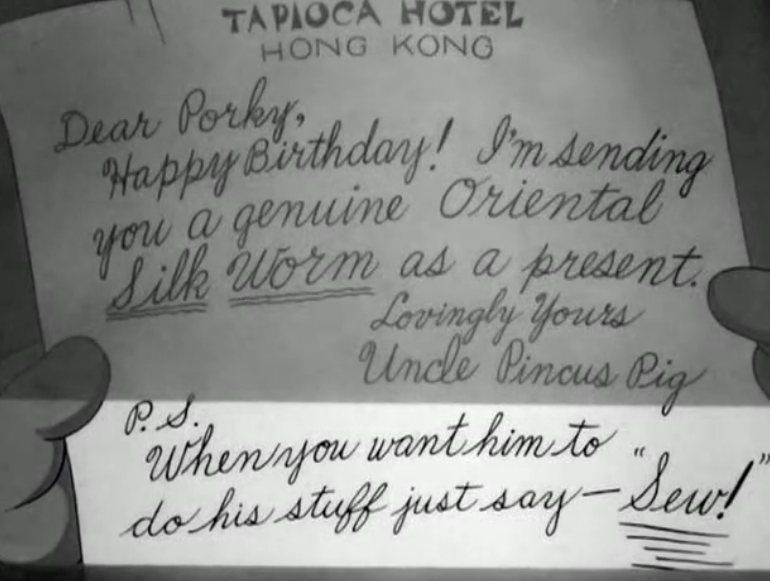 TAPIOCA HOTEL
HONG KONG
Dear Porky,
Happy Birthday! I'm sending
you a genuine Oriental
Silk Worm as a present.
Lovingly Yours
Uncle Pincus Pig
P.S.
When you want him to
do his stuff just say — "Sew!"